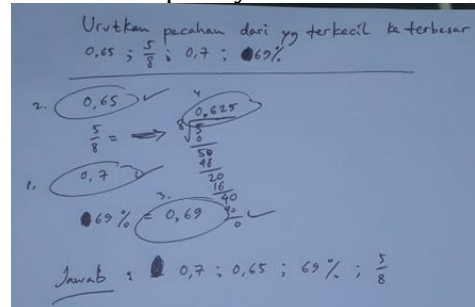 Urutkan pecahan dari yg terkecil ke terbesar
0,65 ; 5/8 ; 0,7 ; 69%
2. 0,65 ✓
4
5/8 = ⟹ 0,625
8√5
0
50
48
20
16
40
40
0
1. 0,7
3.
69% = 0,69 ✓
Jawab : 0,7 ; 0,65 ; 69% ; 5/8